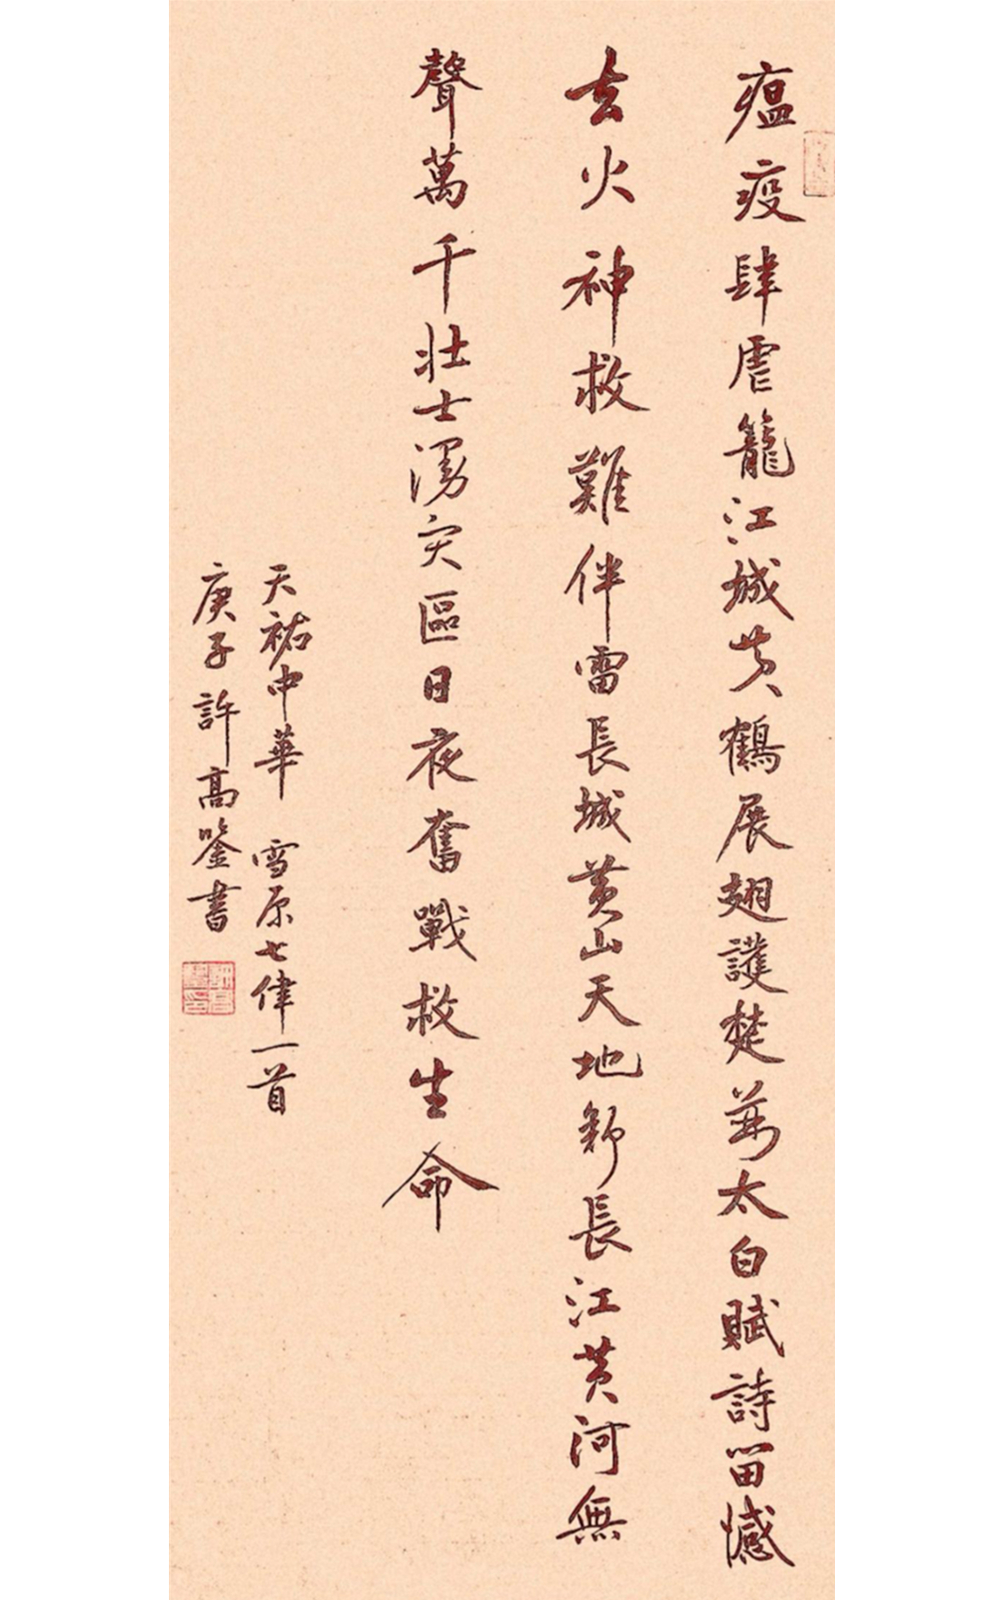 瘟疫肆虐籠江城黄鶴展翅護楚荊太白賦詩留憾
去火神救難伴雷長城黄山天地新長江黄河無
聲萬千壯士湧灾區日夜奮戰救生命
天祐中華 雪原七律一首
庚子許高鋻書